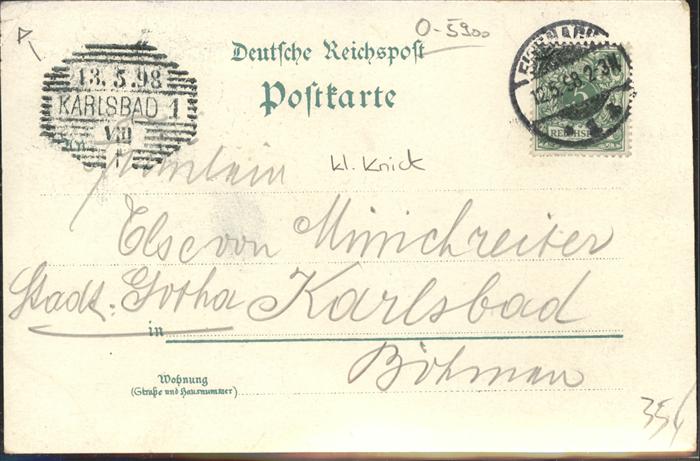 O-5900
Deutsche Reichspost
Postkarte
13.5.98
KARLSBAD 1
VIII
12.5.98.2-3N.
REICHSPOST
Fräulein
kl. Knick
Else von Münichreiter
Stadt. Gotha Karlsbad
in
Böhmen
Wohnung
(Straße und Hausnummer)